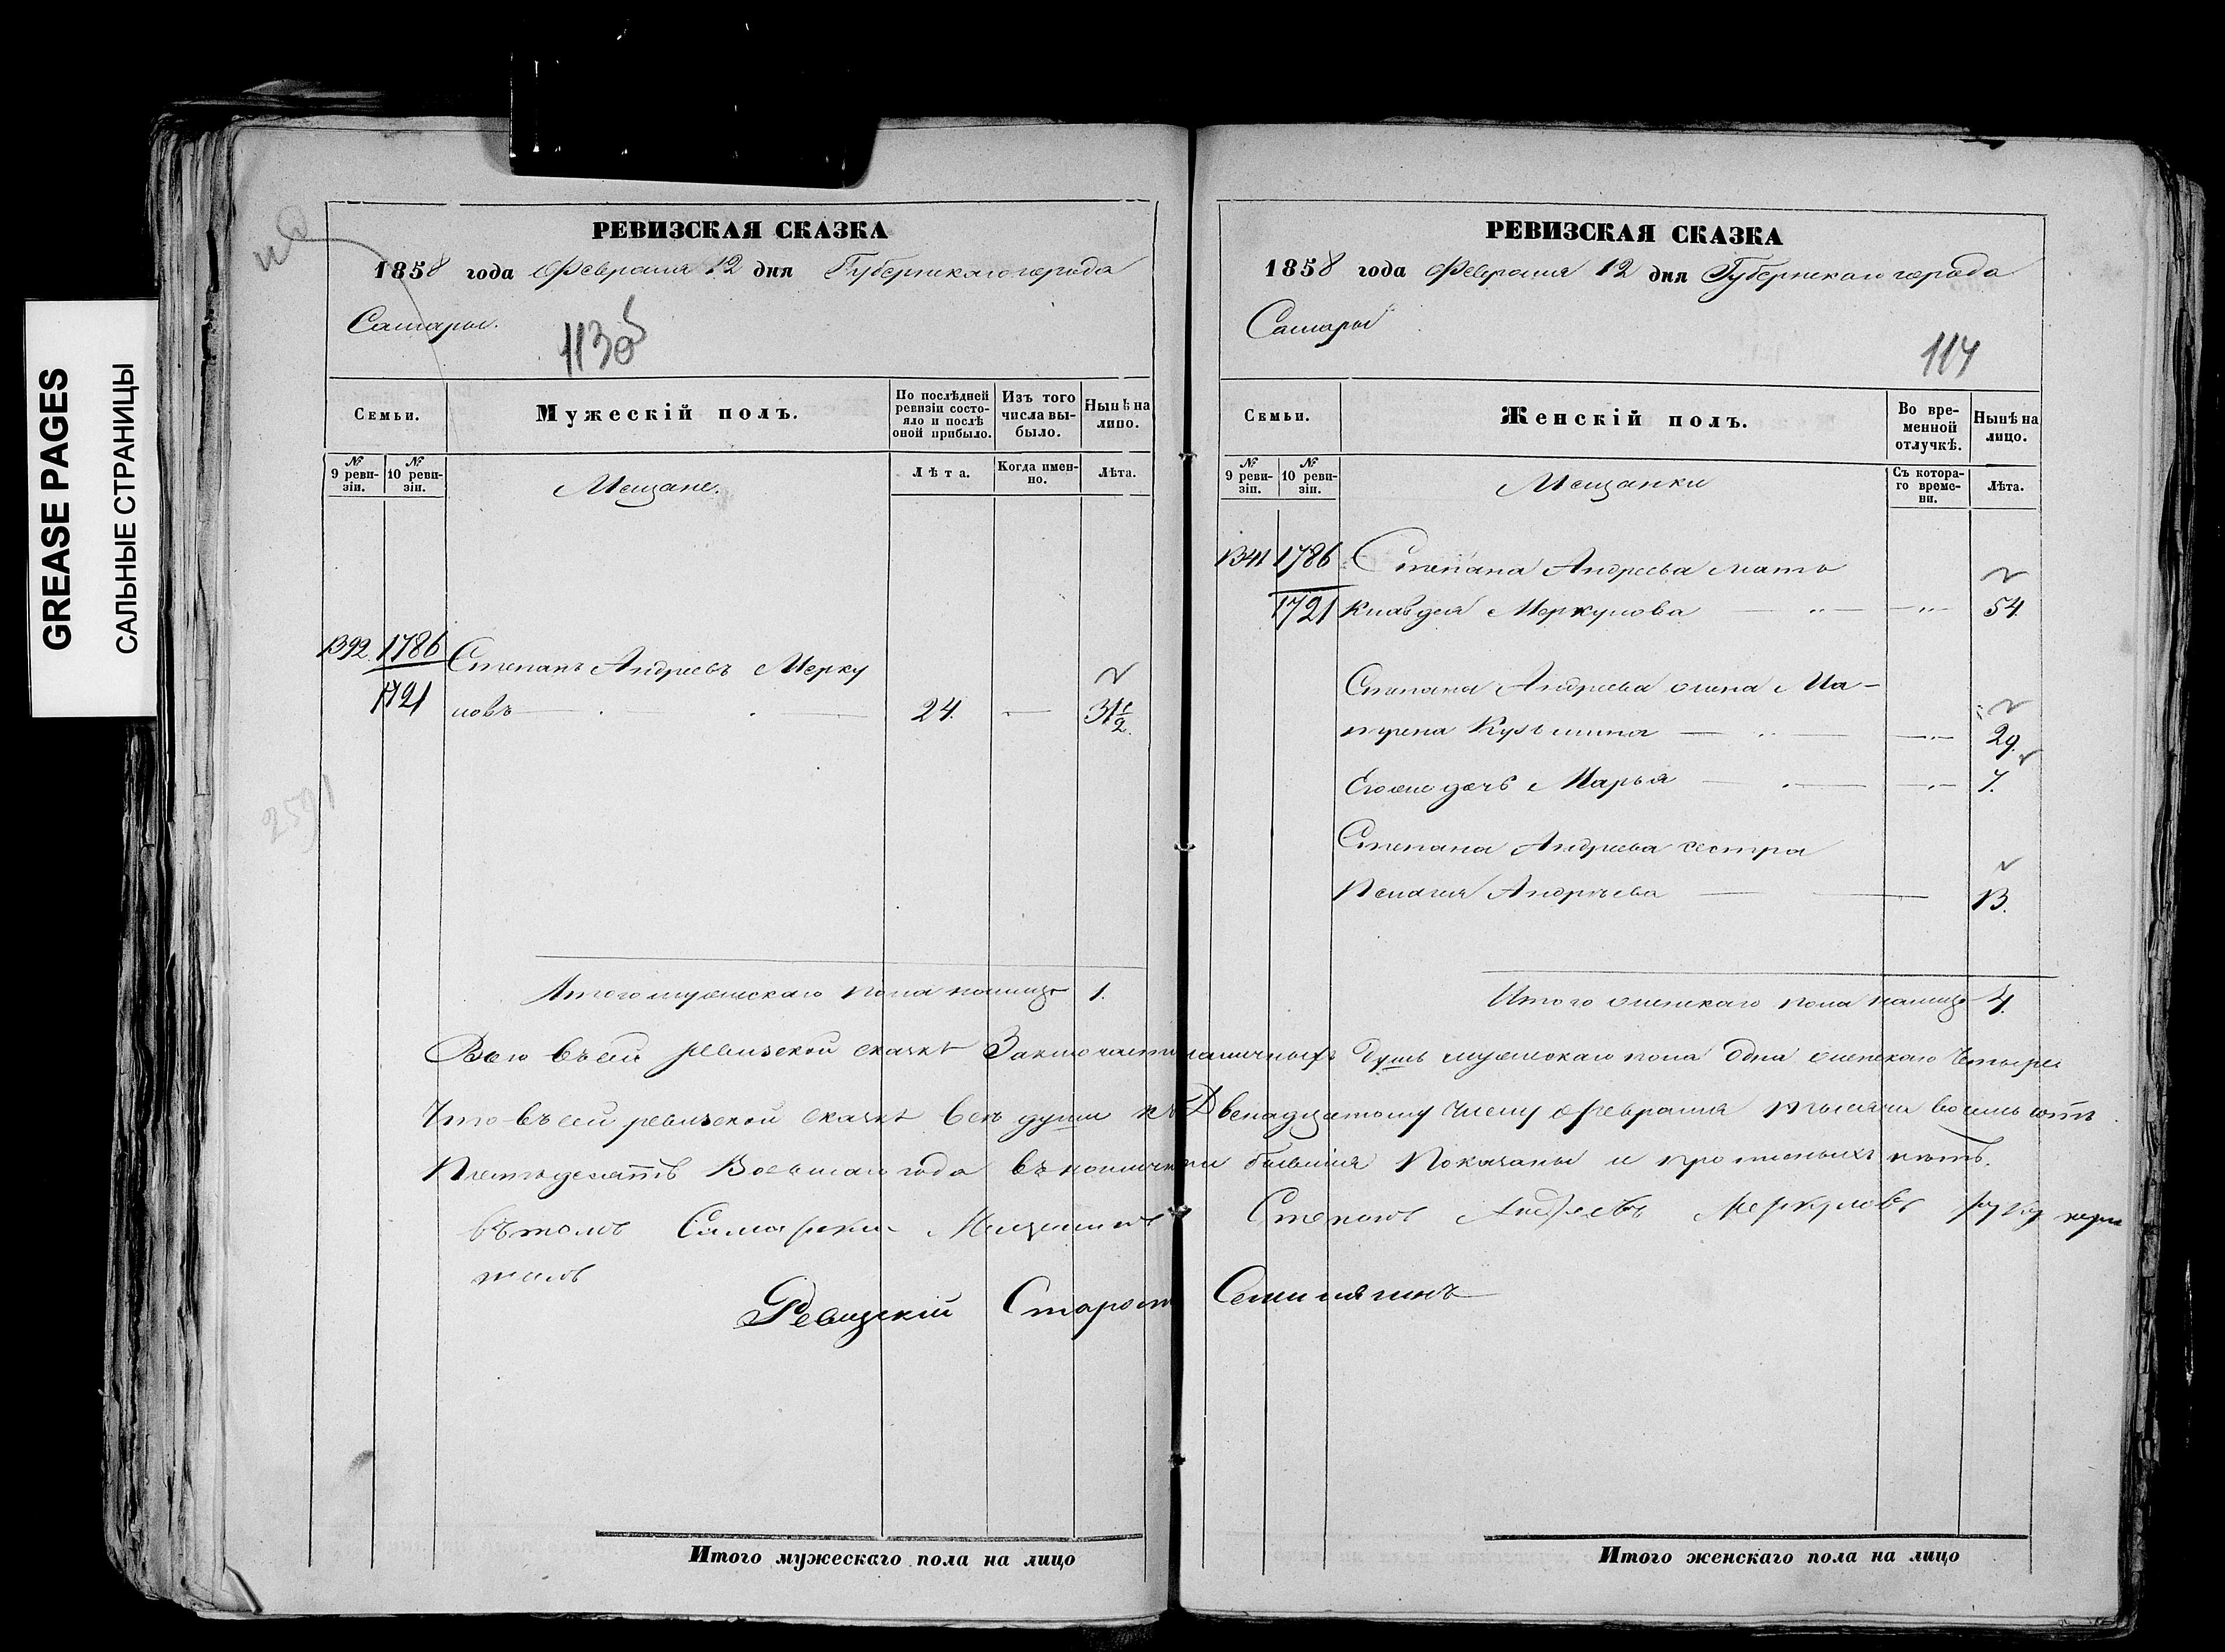 GREASE PAGES
САЛЬНЫЕ СТРАНИЦЫ
РЕВИЗСКАЯ СКАЗКА
1858 года Февраля 12 дня Губернскаго города
Самары.
113об
Семьи.
Мужескій полъ.
По послѣдней ревизіи состояло и послѣ оной прибыло.
Изъ того числа выбыло.
Нынѣ на лицо.
№ 9 ревизіи.
№ 10 ревизіи.
Мещане.
Лѣта.
Когда именно.
Лѣта.
1392. 1786 Степанъ Андреевъ Мерку
1721 ловъ 24. 31½.
2591
Итого мужескаго пола налицо 1.
РЕВИЗСКАЯ СКАЗКА
1858 года Февраля 12 дня Губернскаго города
Самары
114
Семьи.
Женскій полъ.
Во временной отлучкѣ.
Нынѣ на лицо.
№ 9 ревизіи.
№ 10 ревизіи.
Мещанки
Съ котораго времени.
Лѣта.
1341 1786 Степана Андреева мать
1721 Клавдея Меркулова 54
Степана Андреева жена Ма-
трена Кузьмина 29.
Егоже дочь Марья 7.
Степана Андреева сестра
Пелагея Андреева 13.
Итого женскаго пола налицо 4.
Всего въ сей ревизской сказкѣ Заключается наличныхъ душъ мужескаго пола одна женскаго четыре
Что въ сей ревизской сказкѣ все души къ Двенадцатому числу Февраля тысяча восемь сотъ
Пятьдесятъ Восьмаго года въ наличности бывшія Показаны и прописныхъ нѣтъ.
Въ томъ Самарски Мещанинъ Степанъ Андреевъ Меркуловъ руку
Ревизскій Староста
Итого мужескаго пола на лицо
Итого женскаго пола на лицо